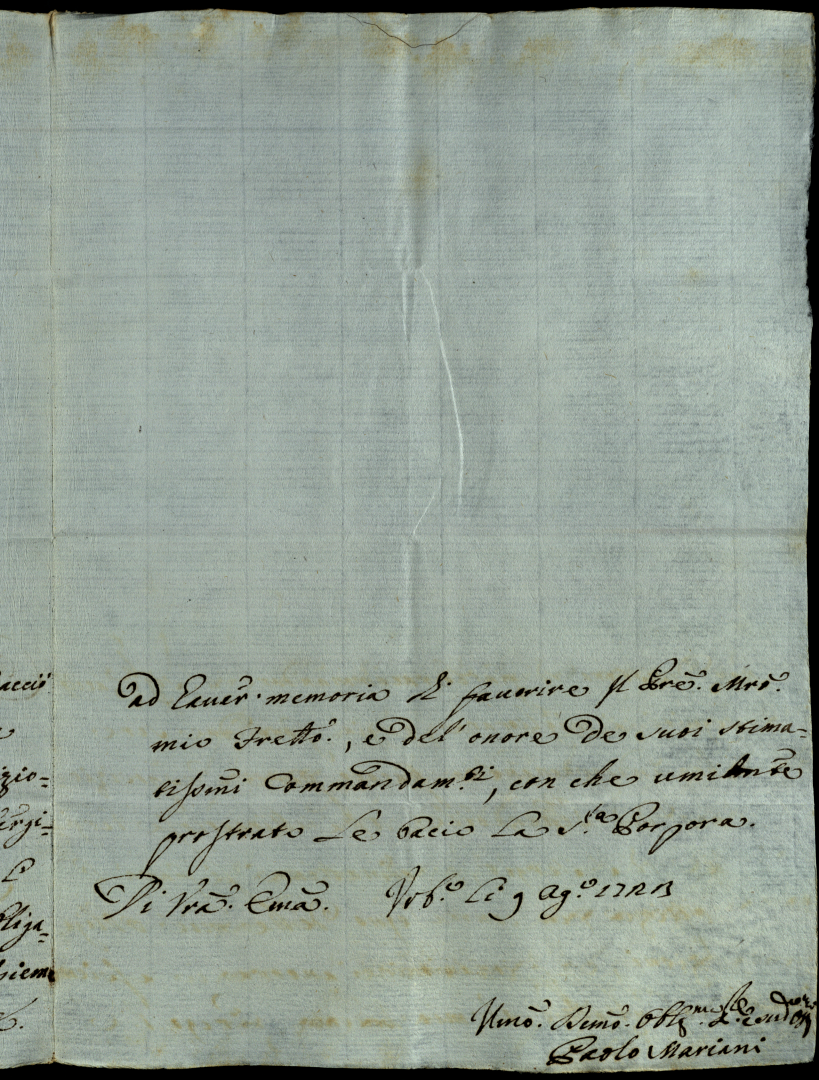 acciò
gio=
ergi=
bliga=
sieme
ad haver memoria di favorire il Prẽ. Mrõ.
mio Fretto., e del' onore de suoi stima=
tissimi Commandam.ti, con che umilm̃te
prostrato Le bacio La S.ra Porpora.
Di Vrã. Emã. Urb.o Li 9 Ag.o
Umõ. Demõ. Obblg.mo
Paolo Mariani